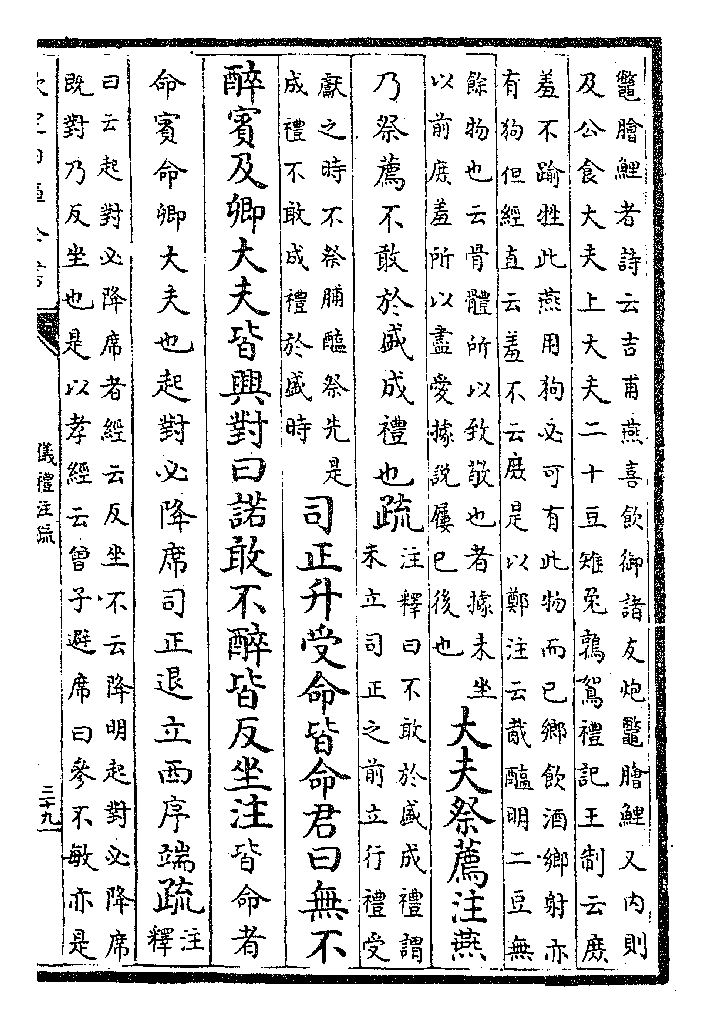 鼈膾鯉者詩云吉甫燕喜飲御諸友炮鼈膾鯉又内則
及公食大夫上大夫二十豆雉兔鶉鴽禮記王制云庶
羞不踰牲此燕用狗必可有此物而已鄉飲酒鄉射亦
有狗但經直云羞不云庶是以鄭注云胾醢明二豆無
餘物也云骨體所以致敬也者據未坐
以前庶羞所以盡愛據説屨已後也
大夫祭薦注燕
乃祭薦不敢於盛成禮也疏
注釋曰不敢於盛成禮謂
未立司正之前立行禮受
獻之時不祭脯醢祭先是
成禮不敢成禮於盛時
司正升受命皆命君曰無不
醉賓及卿大夫皆興對曰諾敢不醉皆反坐注皆命者
命賓命卿大夫也起對必降席司正退立西序端疏
注
釋
曰云起對必降席者經云反坐不云降明起對必降席
既對乃反坐也是以孝經云曾子避席曰參不敏亦是
儀禮注疏
二十九